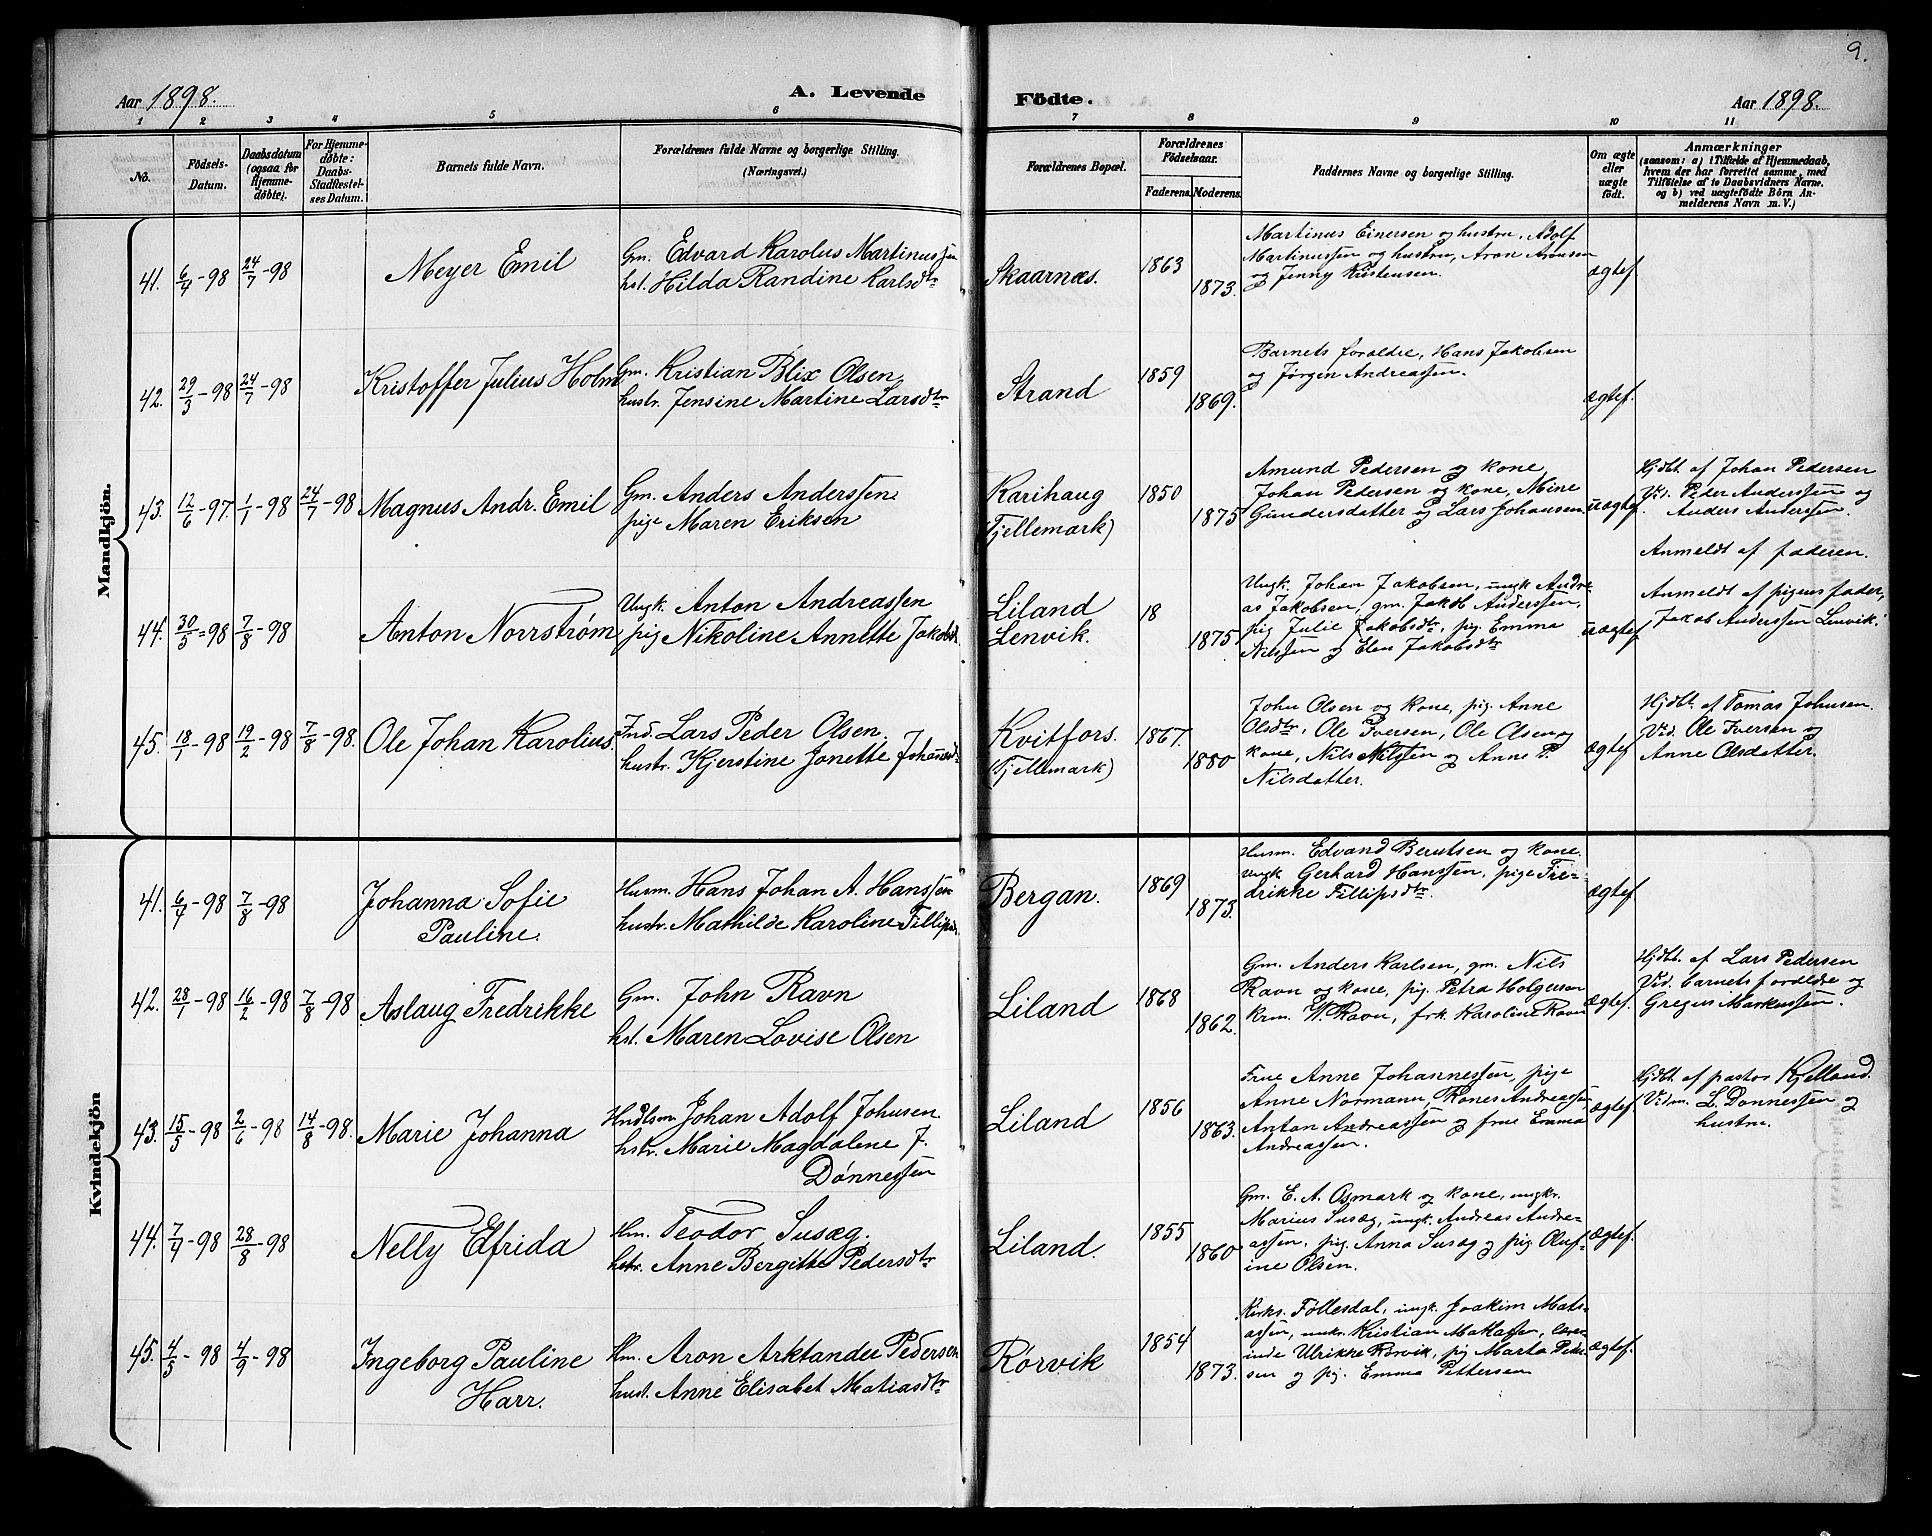 9.
Aar 1898. A. Levende Födte. Aar 1898.
1 2 3 4 5 6 7 8 9 10 11
No.
Födsels-
Datum.
Daabsdatum
(ogsaa for
Hjemme-
döbte).
For Hjemme-
døbte:
Daabs-
Stadfæstel-
ses Datum.
Barnets fulde Navn.
Forældrenes fulde Navne og borgerlige Stilling.
(Næringsvei.)
Forældrenes Bopæl.
Forældrenes
Födselsaar.
Faderens. Moderens.
Faddernes Navne og borgerlige Stilling.
Om ægte
eller
uægte
födt.
Anmærkninger
(saasom: a) i Tilfælde af Hjemmedaab,
hvem der har forrettet samme, med
Tilföielse af to Daabsvidners Navne,
og b) ved uægtefödte Börn An-
melderens Navn m. V.)
Mandkjön.
41. 6/4-98 24/7-98 Meyer Emil
Gm. Edvard Karolus Martinussen
hst. Hilda Randine Karlsdtr
Skaarnæs. 1863 1873.
Martinus Einersen og hustru, Adolf
Martinussen og hustru, Aron Aronsen
og Jenny Kristensen.
ægtef.
42. 29/3-98 24/7-98 Kristoffer Julius Holm
Gm. Kristian Blix Olsen
hustr. Jensine Martine Larsdtr
Strand 1859 1869.
Barnets forældre, Hans Jakobsen
og Jørgen Andreassen.
ægtef.
43. 12/6-97. 1/1-98 24/7-98 Magnus Andr. Emil
Gm. Anders Anderssen
pige Maren Eriksen
Karihaug
(Fjellemark)
1850 1875
Amund Pedersen og kone,
Johan Pedersen og kone, Mine
Gundersdatter og Lars Johansen
uægtef.
Hjdbt. af Johan Pedersen
Vid. Peder Anderssen og
Anders Anderssen.
Anmeldt af faderen.
44. 30/5-98 7/8-98 Anton Norrstrøm
Ungk. Anton Andreassen
pig Nikoline Annette Jakobsd.
Liland
Lenvik.
18 1875
Ungk. Johan Jakobsen, ungk Andre-
as Jakobsen, gm. Jakob Anderssen,
pig Julie Jakobsdtr, pig. Emma
Nilssen og Elen Jakobsdtr
uægtef
Anmeldt af pigens fader,
Jakob Anderssen Lenvik.
45. 18/1-98 19/2-98 7/8-98. Ole Johan Karolius.
Ind. Lars Peder Olsen.
hustr. Kjerstine Jonette Johansd.
Kvitfors.
(Fjellemark)
1867. 1880
John Olsen og kone, pig. Anne
Olsdtr, Ole Iversen, Ole Olsen og
kone, Nils Nilssen og Anne P.
Nilsdatter.
ægtef
Hjdbt. af Tomas Johnsen.
Vid. Ole Iversen og
Anne Olsdatter.
Kvindekjön
41. 6/4-98 7/8-98 Johanna Sofie
Pauline.
Husm. Hans Johan A. Hanssen
hustr. Mathilde Karoline Fillipsd.
Bergan. 1869 1873.
Husm. Edvand Berntsen og kone.
ungk Gerhard Hanssen, pige Fre-
drikke Fillipsdtr.
ægtef.
42. 28/1-98 16/2-98 7/8-98 Aslaug Fredrikke
Gm. John Ravn
hst. Maren Lovise Olsen
Liland 1868 1862.
Gm. Anders Karlsen, gm. Nils
Ravn og kone, pig. Petra Holgersen
krm. W. Ravn, frk. Karoline Ravn
ægtef.
Hjdbt. af Lars Pedersen
Vid. barnets forældre og
Gregus Markussen.
43. 15/5-98 2/6-98 14/8-98. Marie Johanna
Hndlsm. Johan Adolf Johnsen
hstr. Marie Magdalene J.
Dønnessen
Liland 1856 1863.
Frue Anne Johannessen, pige
Anne Normann, Rones Andreassen
Anton Andreassen og frue Emma
Andreassen.
ægtef.
Hjdbt. af pastor Kjelland.
Vidn. L. Dønnessen og
hustru.
44. 7/4-98 28/8-98 Nelly Elfrida
Hm. Teodor Susæg.
hstr. Anne Bergitte Pedersdtr
Liland. 1855 1860
Gm. E. A. Osmark og kone, ungkr.
Marius Susæg, ungk. Andreas Andre-
assen, pig. Anna Susæg og pig. Oluf-
ine Olsen.
ægtef.
45. 4/5-98 4/9-98 Ingeborg Pauline
Harr.
Hm. Aron Arktander Pedersen
hust. Anne Elisabet Matiasdtr
Rørvik 1854 1873.
Kirks. Føllesdal, ungk. Joakim Mats-
assen, Kristian lærer-
inde Ulrikke Rørvik, pig Marta Peder-
sen og pig. Emma Pettersen
ægtef.